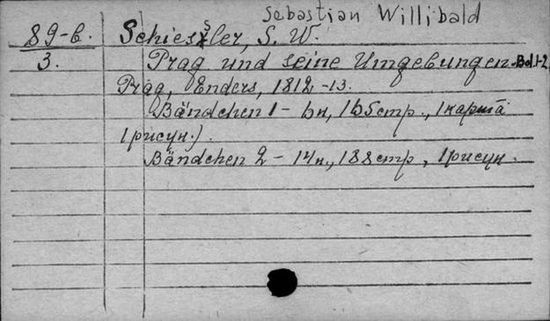 Sebastian Willibald
89-б. Schiessler, S. W.
3. Prag und seine Umgebungen. Bd. 1-2
Prag, Enders, 1812-13.
Bändchen 1 - 6н, 165стр., 1карта
1рисун.)
Bändchen 2 - 14н., 188стр, 1рисун.